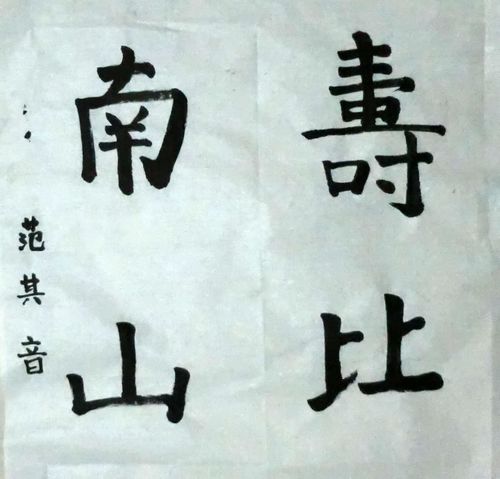 壽比
南山
范其音